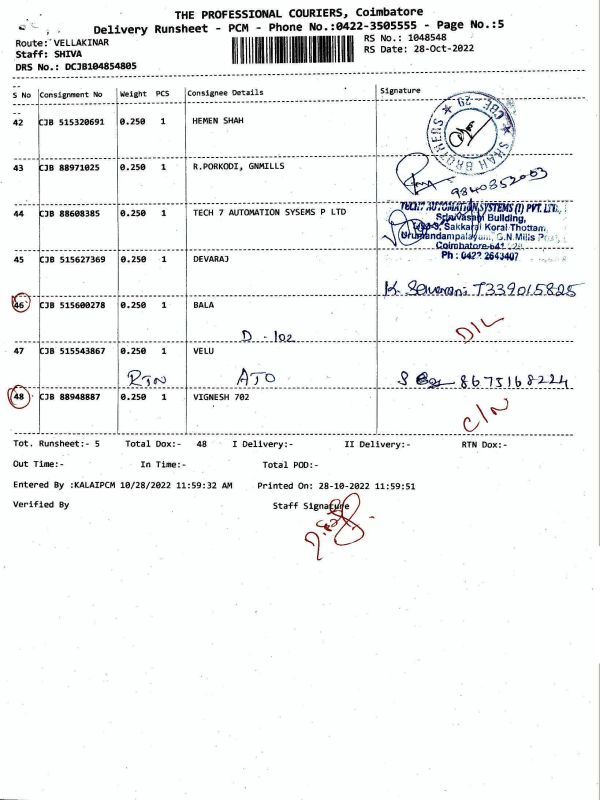 THE PROFESSIONAL COURIERS, Coimbatore
Delivery Runsheet - PCM - Phone No.:0422-3505555 - Page No.:5
Route: VELLAKINAR
RS No.: 1048548
Staff: SHIVA
RS Date: 28-Oct-2022
DRS No.: DCJB104854805
S No Consignment No Weight PCS Consignee Details Signature
42 CJB 515320691 0.250 1 HEMEN SHAH
★ SHAH BROTHERS ★ CBE-29
43 CJB 88971025 0.250 1 R.PORKODI, GNMILLS
9840352003
44 CJB 88608385 0.250 1 TECH 7 AUTOMATION SYSEMS P LTD
TECH7 AUTOMATION SYSTEMS (I) PVT. LTD.,
Srinivasan Building,
Sakkarai Korai Thottam,
Urumandampalayam, G.N.Mills Post,
Coimbatore-641 029
Ph : 0422 2643407
45 CJB 515627369 0.250 1 DEVARAJ
7339015825
46 CJB 515600278 0.250 1 BALA
D - 102
D/L
47 CJB 515543867 0.250 1 VELU
RTN ATO
8675168224
48 CJB 88948887 0.250 1 VIGNESH 702
C/N
Tot. Runsheet:- 5 Total Dox:- 48 I Delivery:- II Delivery:- RTN Dox:-
Out Time:- In Time:- Total POD:-
Entered By :KALAIPCM 10/28/2022 11:59:32 AM Printed On: 28-10-2022 11:59:51
Verified By Staff Signature